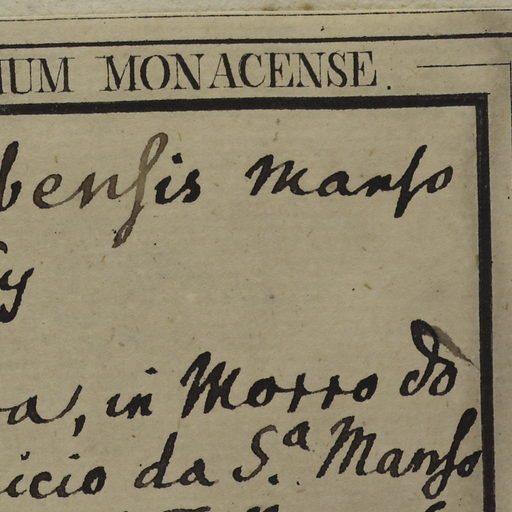 IUM MONACENSE.
bensis Manso
y
a, in Morro do
icio da S.ª Manso